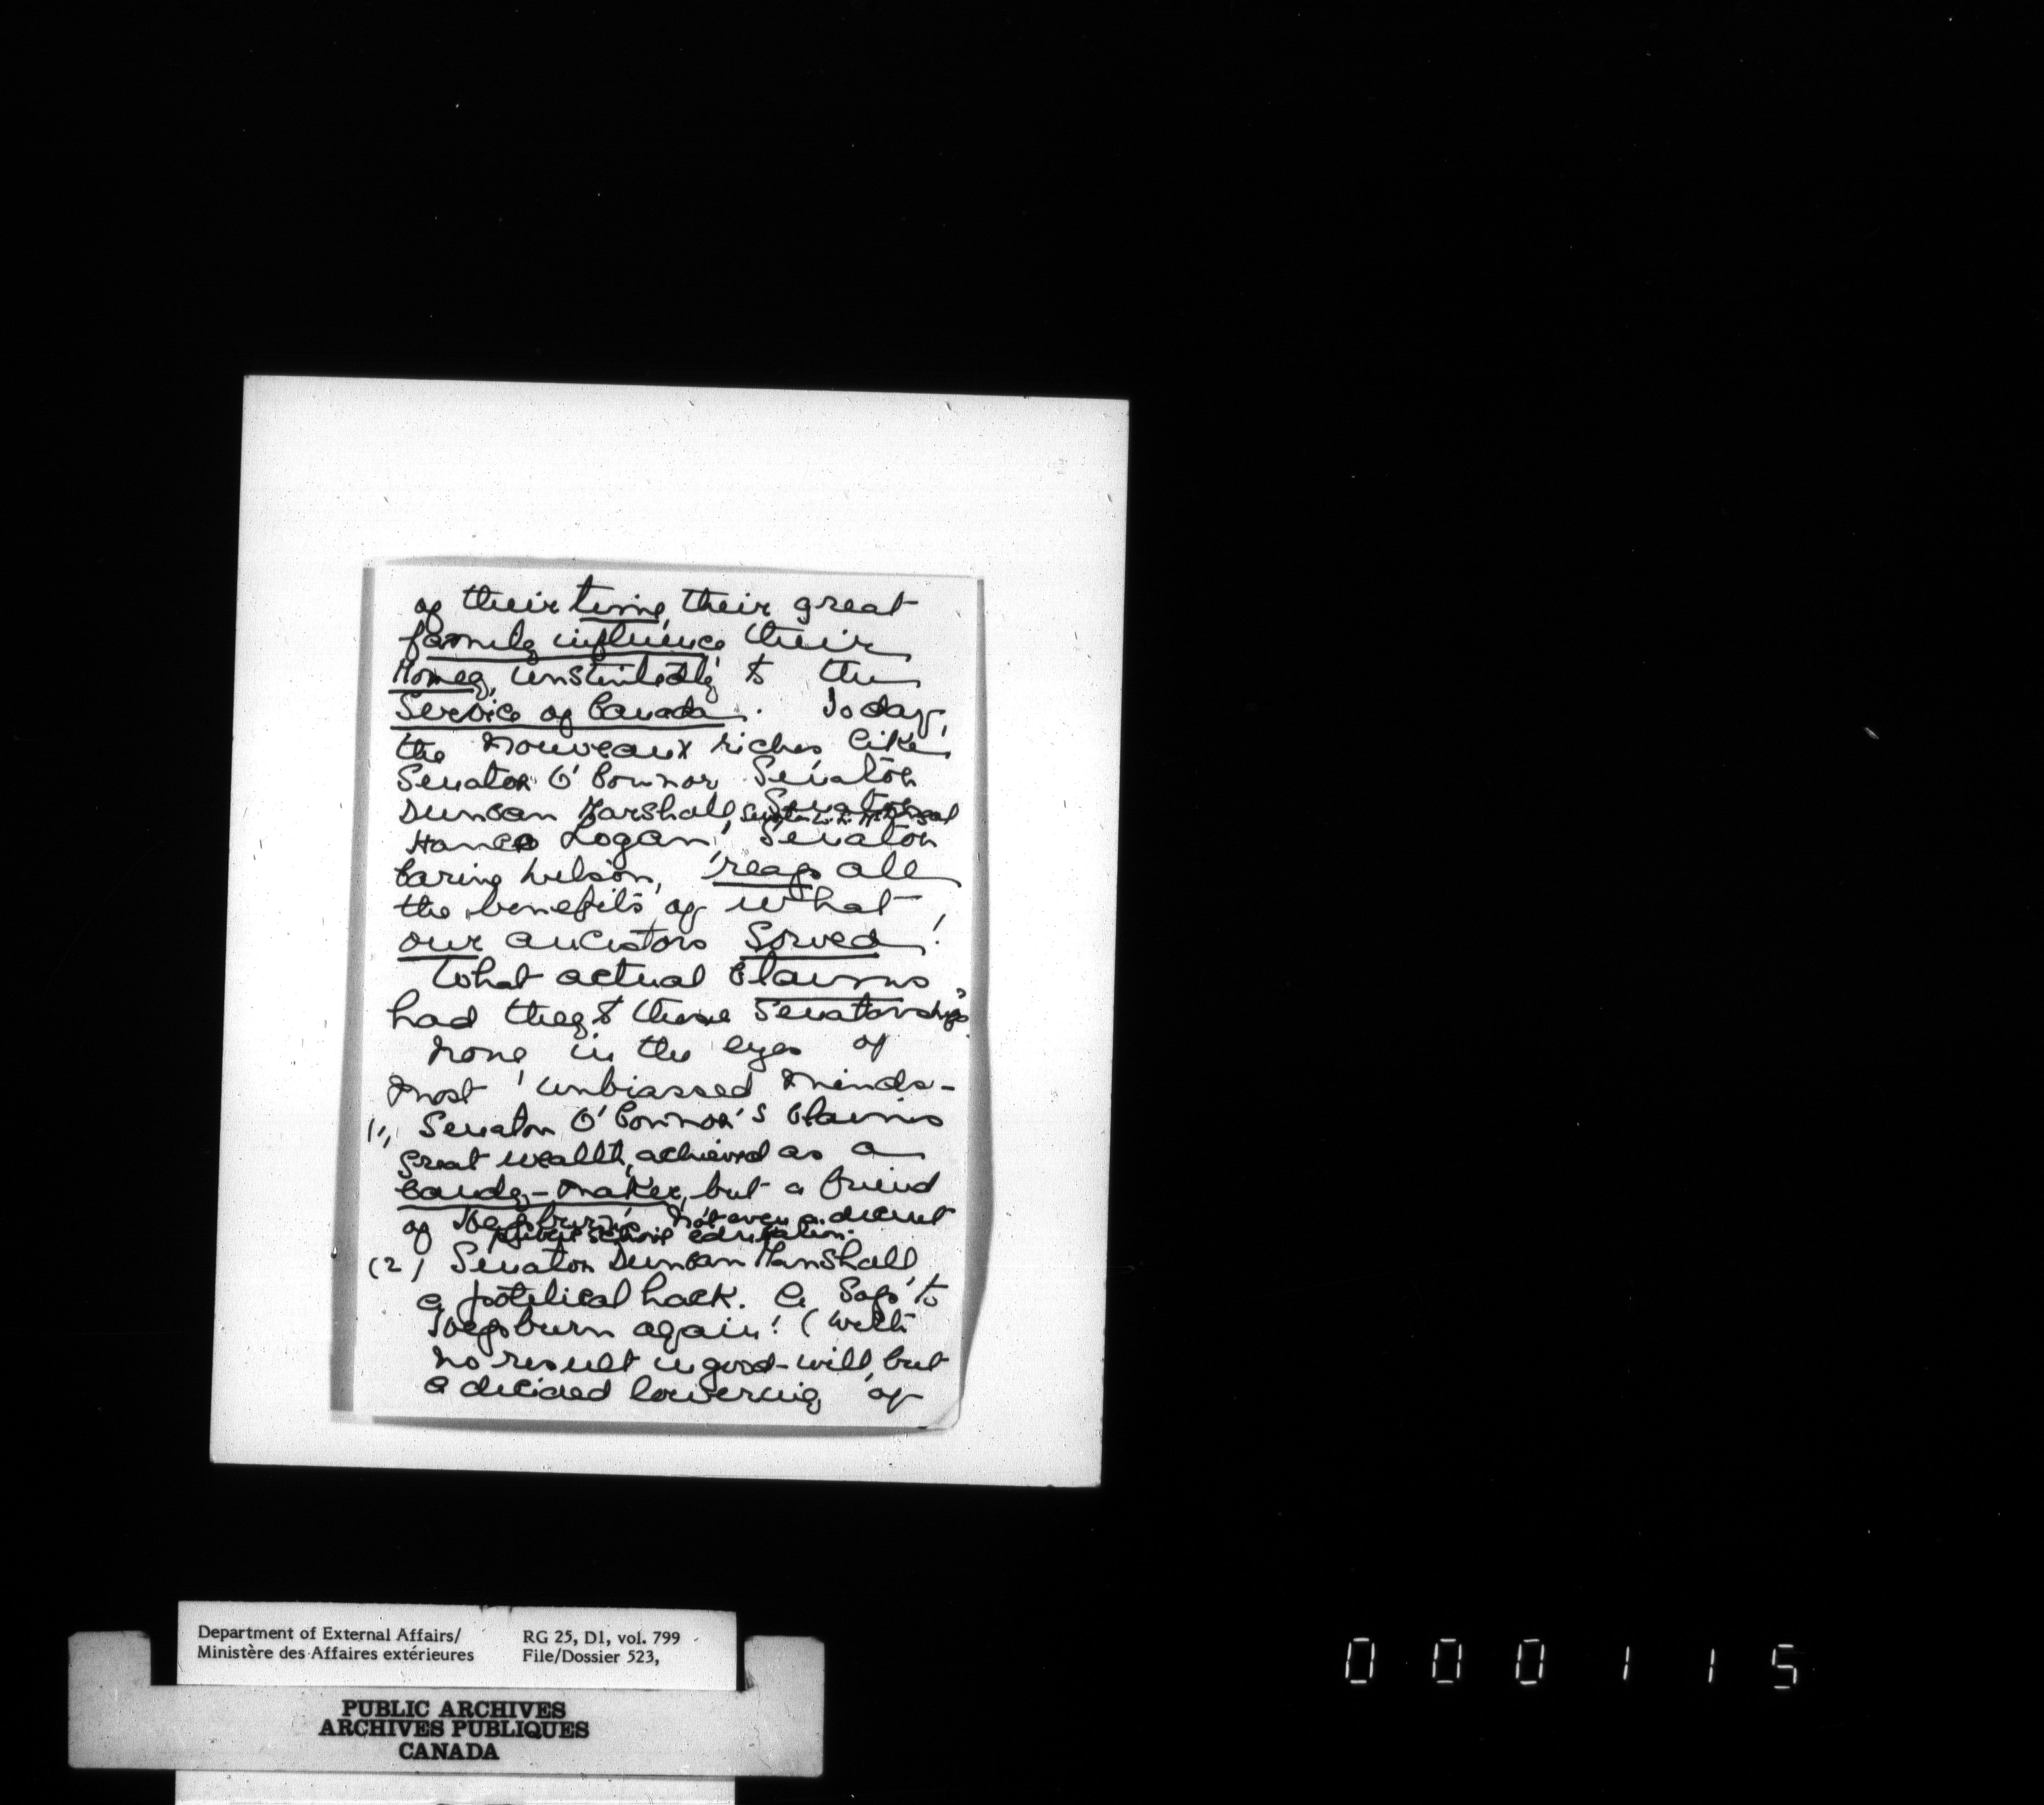 of their time, their great
family influence, their
Money, unstintedly, to the
Service of Canada. Today,
the Nouveaux riches like
Senator O'Connor Senator
Duncan Marshall, Senator
Senator W. H.
Hance Logan, Senator
Carine Wilson, reap all
the benefits of what
our ancestors Sowed!
What actual Claims
had they to these Senatorships?
None, in the eyes of
most unbiassed minds-
1., Senator O'Connor's Claims
Great wealth, achieved as a
Candy-maker, but a friend
of Hepburn's Not even a decent
public school education.
(2) Senator Duncan Marshall
a political hack. A Sop to
Hepburn again! (with
no result in good-will, but
a decided lowering of
Department of External Affairs/ RG 25, D1, vol. 799
Ministère des Affaires extérieures File/Dossier 523,
PUBLIC ARCHIVES
ARCHIVES PUBLIQUES
CANADA
000115